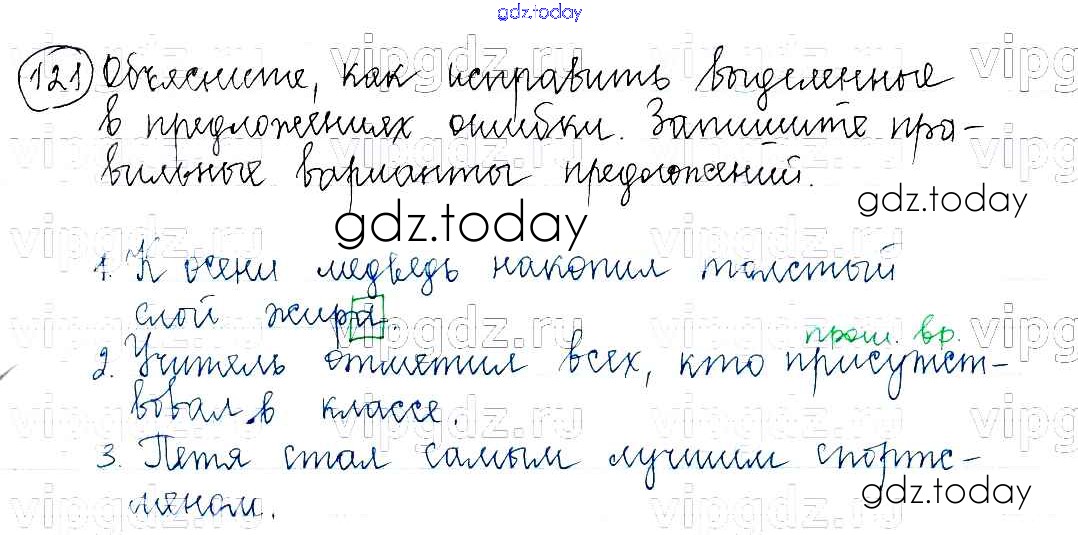 gdz.today
121 Объясните, как исправить выделенные
в предложениях ошибки. Запишите пра-
вильные варианты предложений.
gdz.today
gdz.today
1. К осени медведь накопил толстый
слой жира.
прош. вр.
2. Учитель отметил всех, кто присутст-
вовал в классе.
3. Петя стал самым лучшим спортс-
меном.
gdz.today
vipgdz.ru